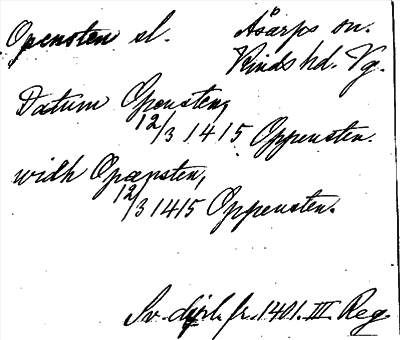 Opensten sl. Åsarps sn.
Kinds hd. Vg.
Datum Oponsten,
12/3 1415 Oppensten.
widh Opæpsten,
12/3 1415 Oppensten.
Sv. dipl. fr. 1401. III. Reg